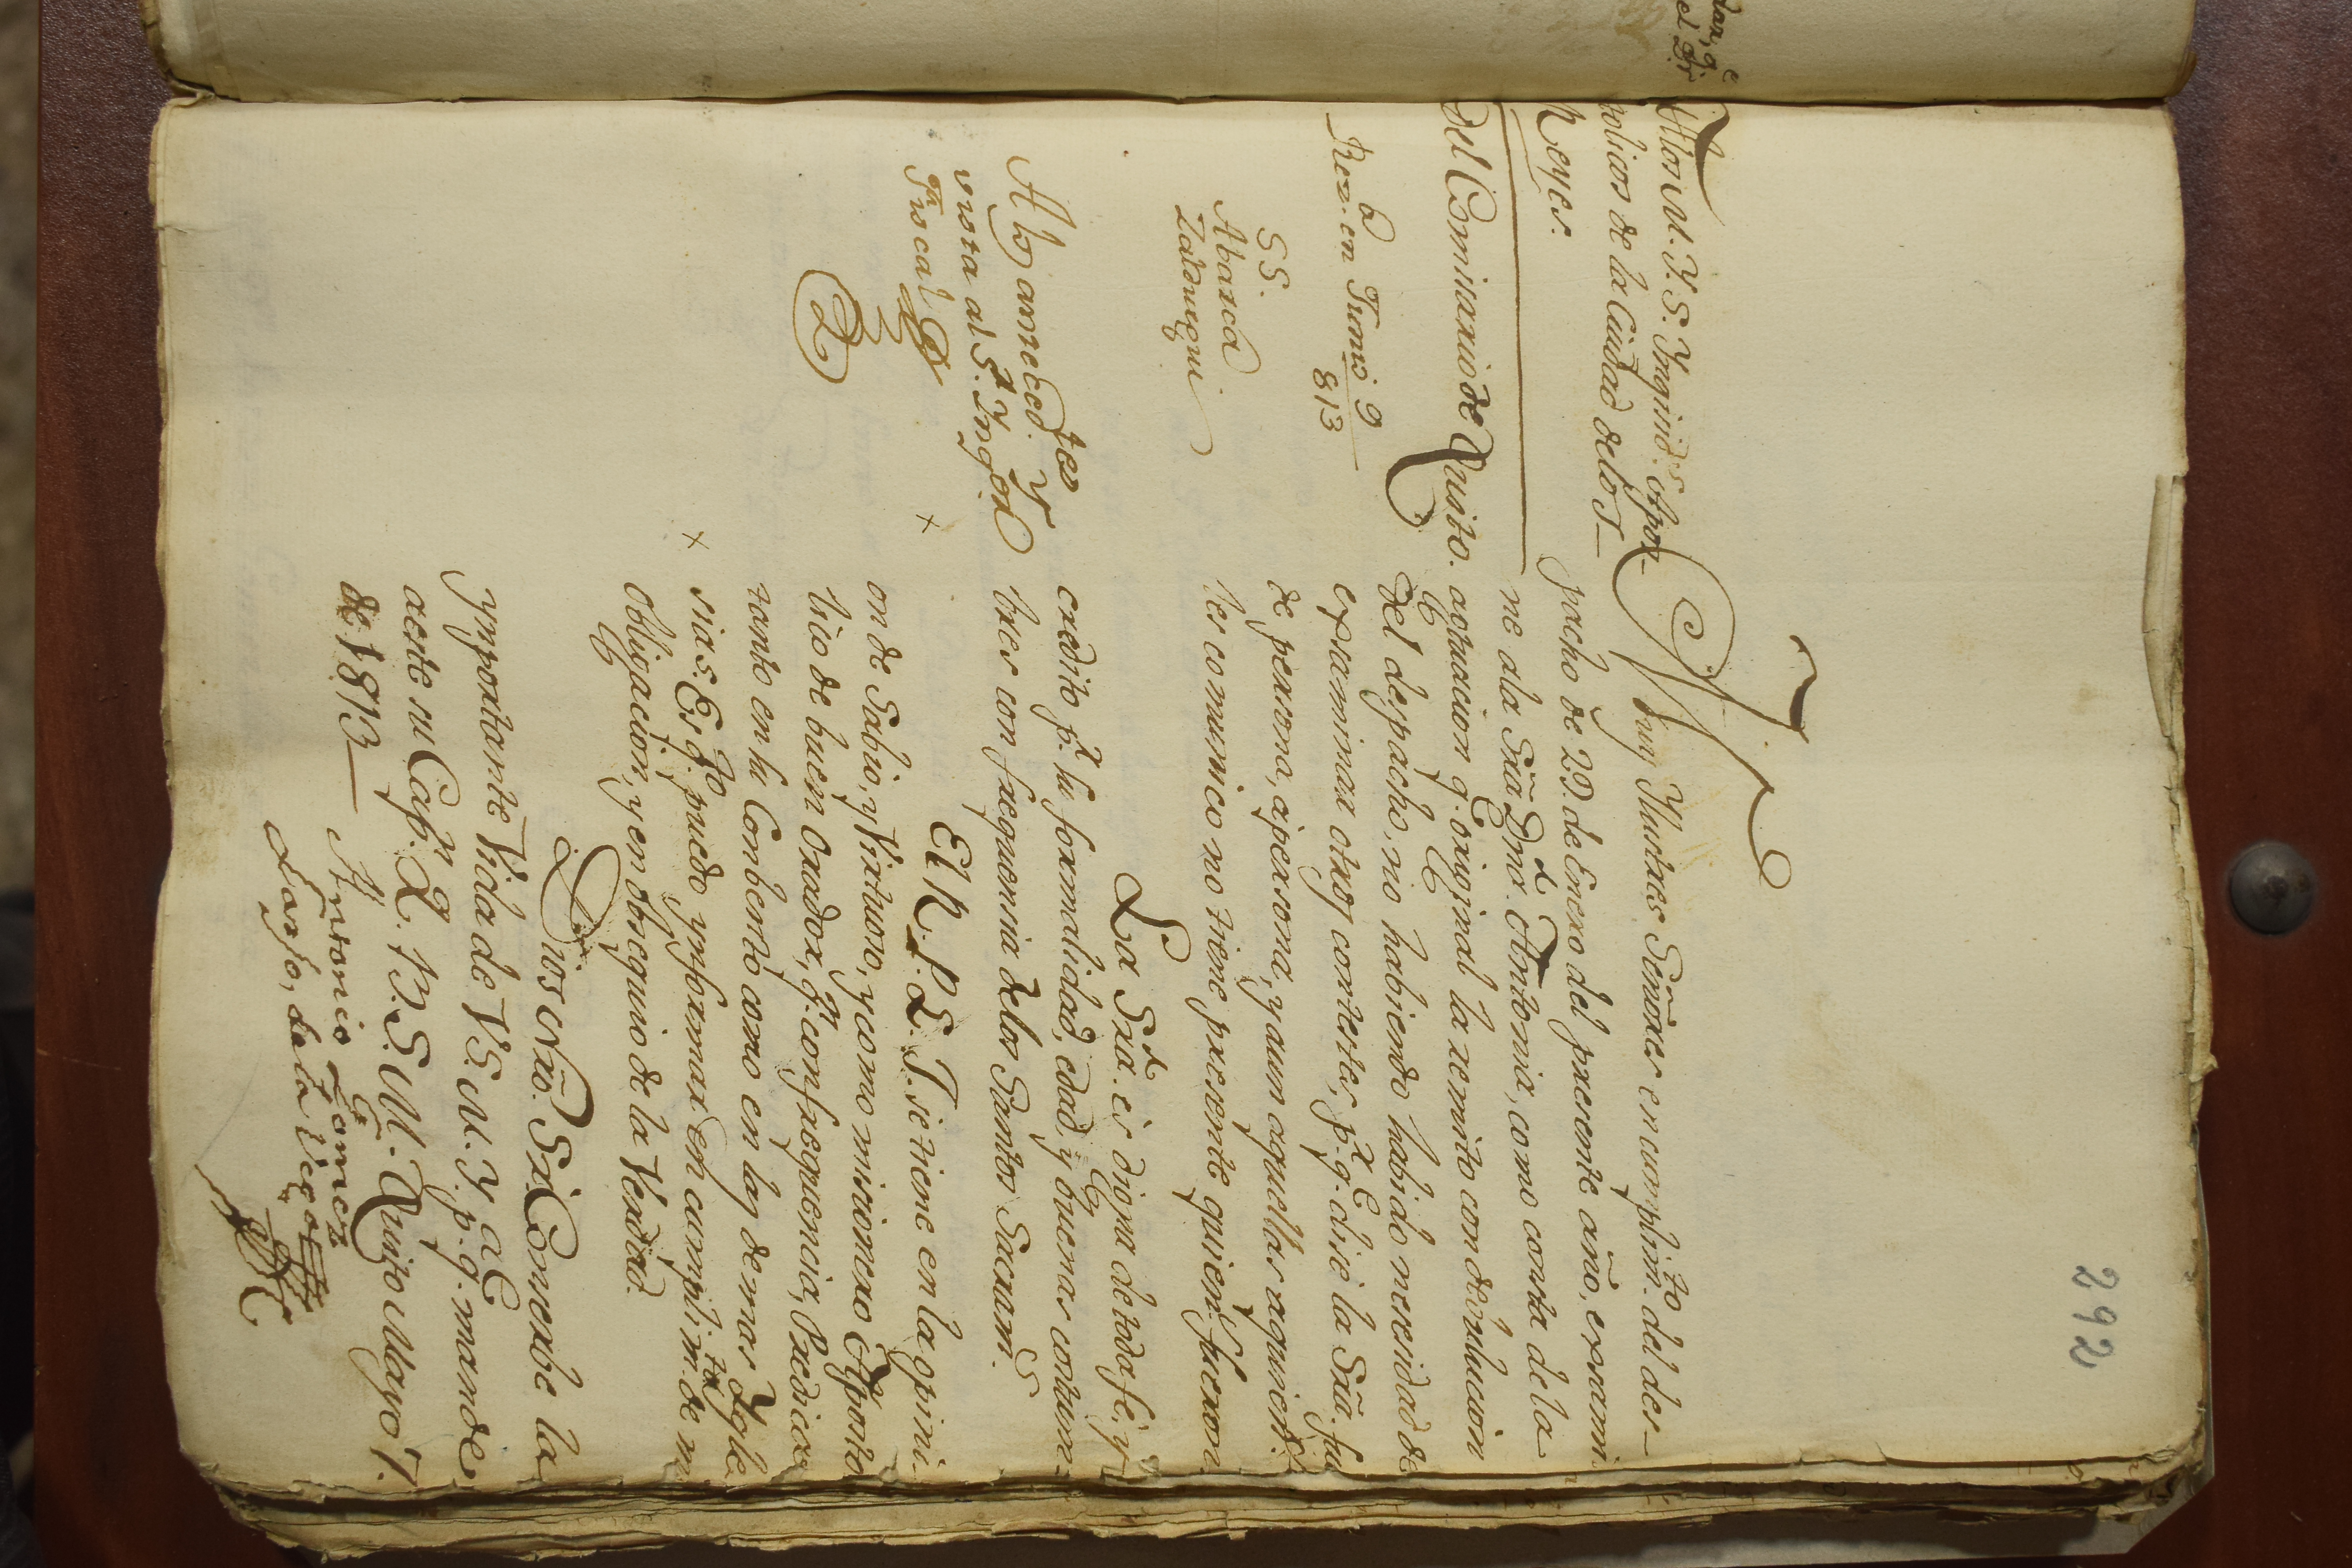 292
Alos M. Y. S.res Ynquis.es Apos-
tolicos de la Ciudad de los
Reyes.
Del Comisario de Quito.
Rex.do en Junio 9
813
SS.
Abarca
Zalduegui
A los anteced.tes y
vista al S.r Ynq.or
Fiscal
Muy Ylustres Señores en cumplim.to del des-
pacho de 29. de Enero del presente año, examin
ne ala Srã D.ña Antonia, como consta de la
actuacion q.e original la remito con devolucion
del despacho, no habiendo habido necesidad de
examinar otros contestes, p.r q.e dice la Srã. fu
de persona, a persona, y aun aquellas a quienes
les comunico no tiene presente quienes fueron
La Sra. es digna de toda fé, y
credito p.r su formalidad, edad, y buenas costum-
bres con frequencia de los Santos Sacram.s
El R. P. L. J. se tiene en la opini-
on de Sabio, y Virtuoso, y como misionero Aposto
lico de buen Orador, q.e con frequencia, Predica
tanto en su Convento como en las demas Ygle
sias. Es q.to puedo ynformar en cumplim.to de mi
obligacion, y en obsequio de la Verdad.
Dios Nrõ. S.r Conserbe la
ymportante Vida de V.S. M. Y. p.a q.e mande
a este su Cap.n Q. B. S. M. Quito Mayo 7.
de 1813
Antonio Gomez
Lasso, de la Vega